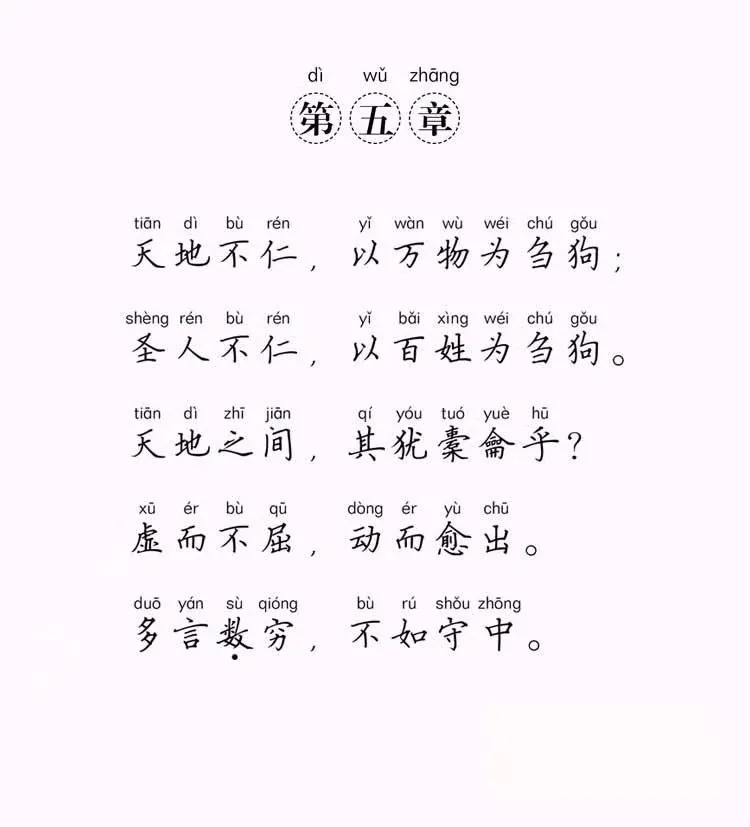 dì wǔ zhāng
第五章
tiān dì bù rén yǐ wàn wù wéi chú gǒu
天地不仁，以万物为刍狗；
shèng rén bù rén yǐ bǎi xìng wéi chú gǒu
圣人不仁，以百姓为刍狗。
tiān dì zhī jiān qí yóu tuó yuè hū
天地之间，其犹橐龠乎？
xū ér bù qū dòng ér yù chū
虚而不屈，动而愈出。
duō yán sù qióng bù rú shǒu zhōng
多言数穷，不如守中。